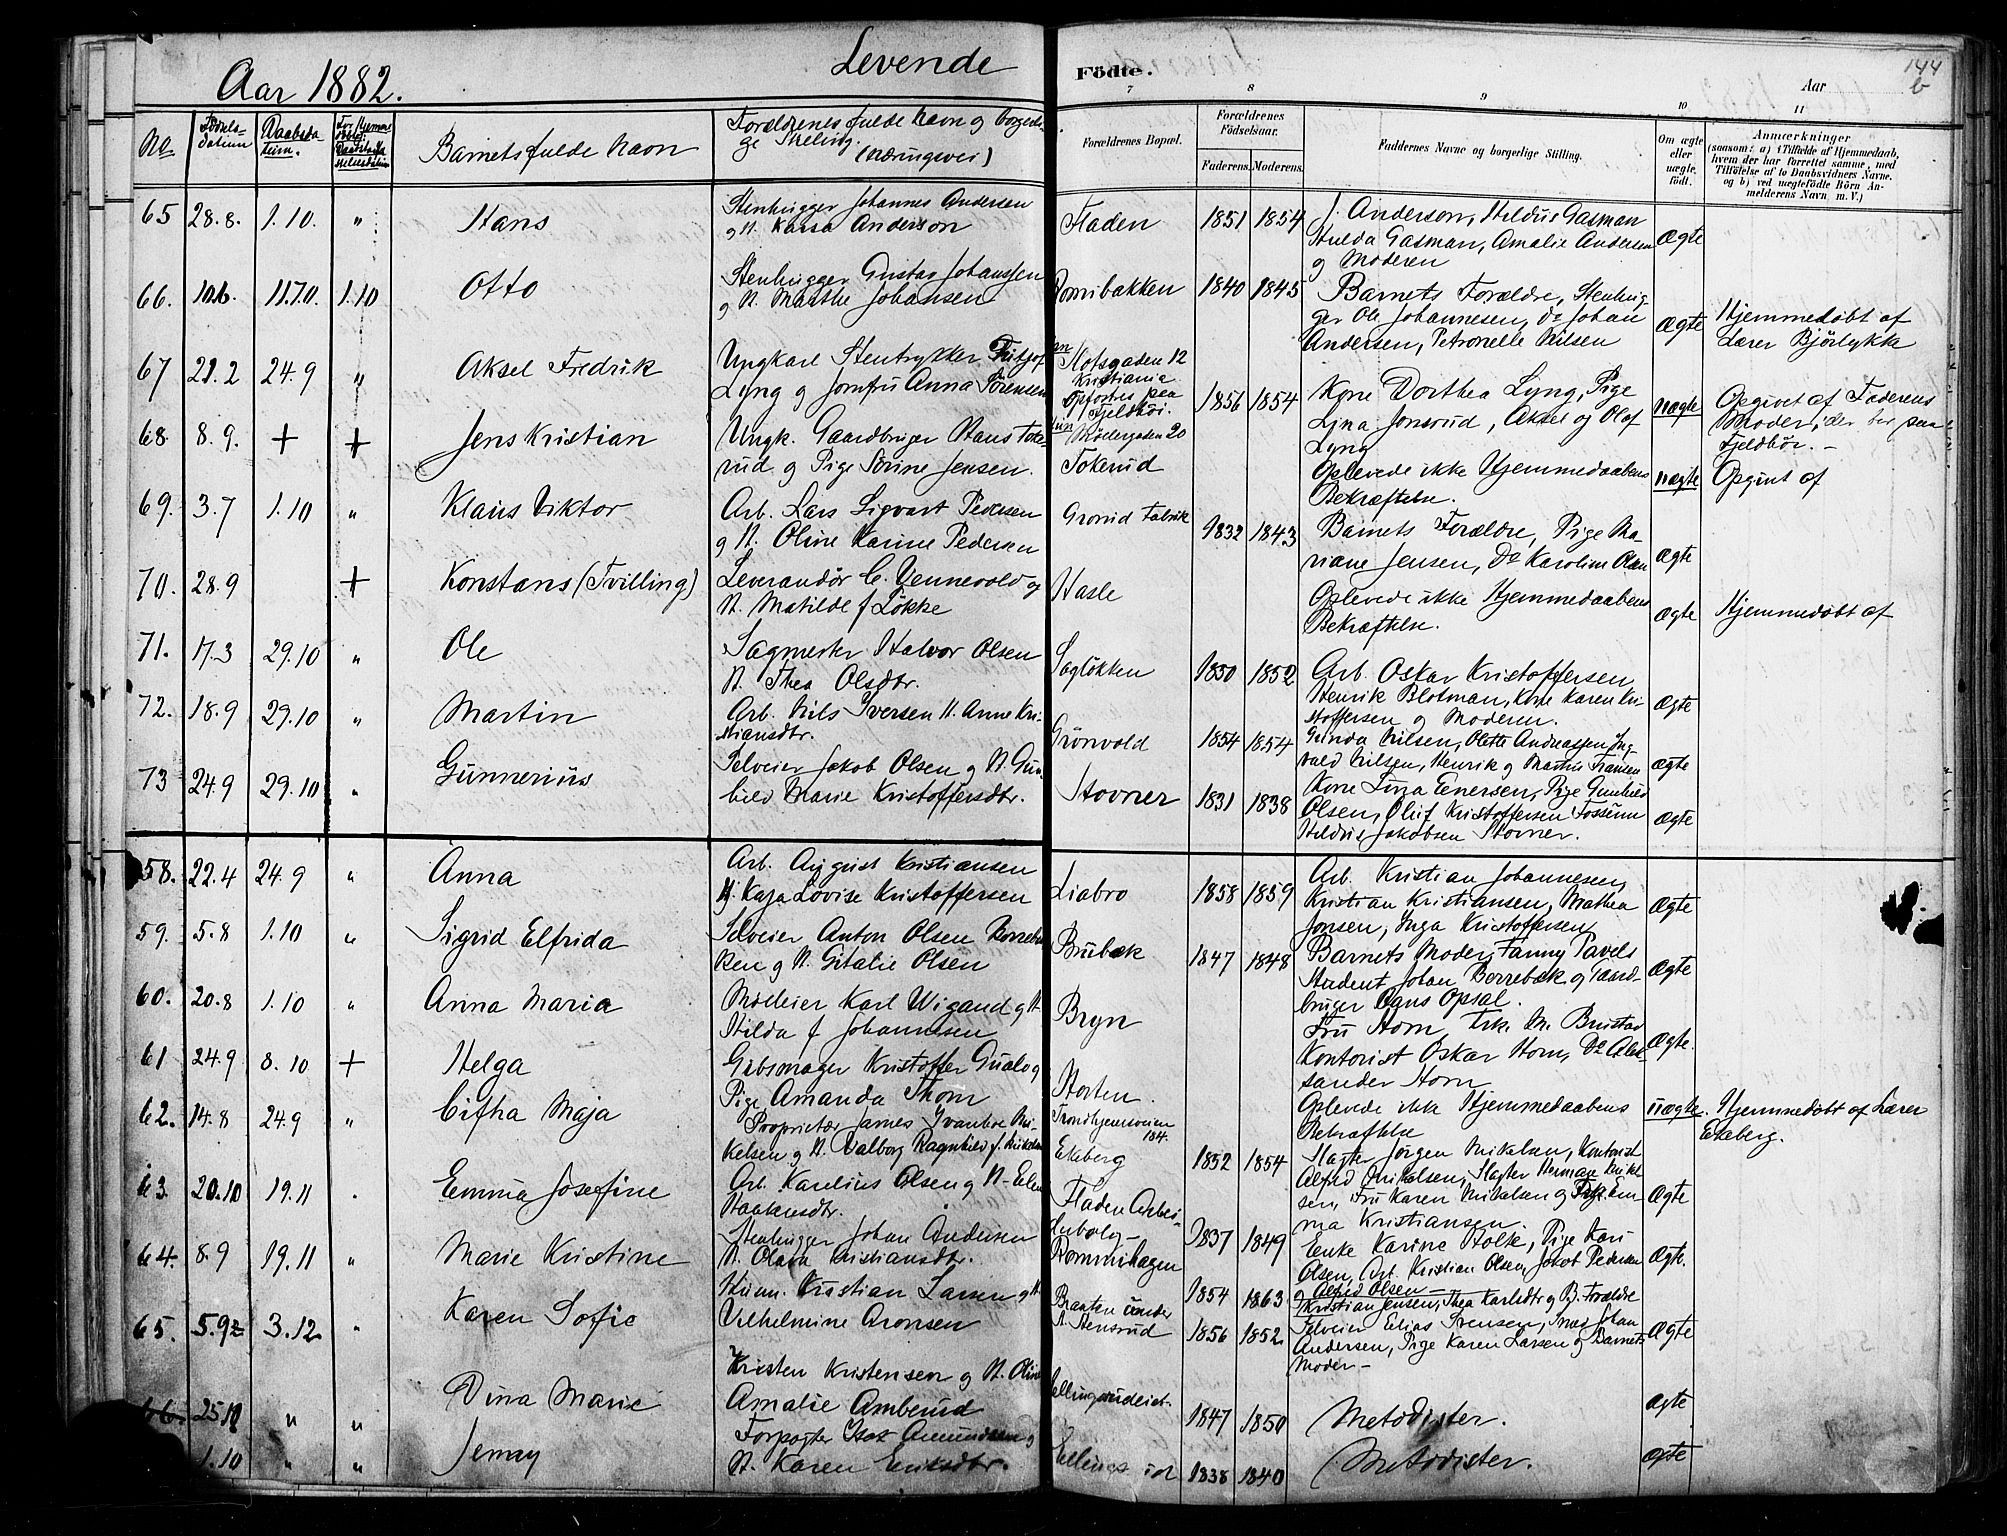 Levende
Aar 1882.
Födte.
144
b
Aar
7
8
9
10
11
No
Fødsels-
datum
Daabsda-
tum.
Barnets fulde Navn
Forældrenes fulde Navn og borgerli-
ge Stilling.
(Næringsvei)
Forældrenes Bopæl.
Forældrenes
Födselsaar.
Faderens.
Moderens.
Faddernes Navne og borgerlige Stilling.
Om ægte
eller
uægte
födt.
Anmærkninger
(saasom: a) i Tilfælde af Hjemmedaab,
hvem der har forrettet samme, med
Tilföielse af to Daabsvidners Navne,
og b) ved uægtefödte Börn An-
melderens Navn, m. V.)
65 28.8. 1.10. " Hans
Stenhugger Johannes Andersen
og H. Kaisa Anderson
Fladen 1851 1854
J. Anderson, Hildus Gasman
Hulda Gasman, Amalie Andersen
og Moderen
Ægte
66. 10.6. 11.7.0. 1.10 Otto
Stenhugger Gustav Johanssen
og H. Marthe Johansen
Rommibakken 1840 1845
Barnets Forældre, Stenhug-
ger Ole Johannesen, Do Johan
Andersen, Petronelle Nilsen
Ægte
Hjemmedøbt af
Lærer Bjørlykke
67 21.2 24.9 " Aksel Fredrik
Ungkarl Stentrykker Fritjof
Lyng og Jomfru Anna Sørensen
Slotsgaden 12
Kristiania
Opfostres paa
Fjeldhøi.
Møllergaden 20
1856 1854
Kone Dorthea Lyng, Pige
Lina Jonsrud, Aksel og Olaf
Lyng
Uægte
Opgivet af Faderens
Moder, der bor paa
Fjeldhøi. –
68 8.9. + + Jens Kristian
Ungk. Gaardbruger Hans Toke-
rud og Pige Sörine Jensen.
Tokerud
Oplevede ikke Hjemmedaabens
Bekræftelse.
Uægte
Opgivet af
69. 3.7 1.10 " Klaus Viktor
Arb. Lars Sigvart Pedersen
og H. Oline Karine Pedersen
Grorud Fabrik 1832 1843
Barnets Forældre, Pige Ma-
riane Jensen, Do Karoline Olsen
Ægte
70. 28.9 + Konstans (Tvilling)
Leverandør C. Vennevold og
H. Matilde f. Løkke
Hasle
Oplevede ikke Hjemmedaabens
Bekræftelse.
Ægte
Hjemmedøbt af
71. 17.3 29.10 " Ole
Sagmester Halvor Olsen
H. Thea Olsdtr.
Sagløkken 1850 1852
Arb. Oskar Kristoffersen
Henrik Blotman, Kone Karen Kri-
stoffersen og Moderen.
Ægte
72. 18.9 29.10 " Martin
Arb. Nils Iversen H. Anne Kri-
stiansdtr.
Grønvold 1854 1854
Gunda Nilsen, Olette Andreassen Ing-
vald Nilsen, Henrik og Martin Fransen
Ægte
73 24.9 29.10 " Gunnerius
Selveier Jakob Olsen og H. Gun-
hild Marie Kristoffersdtr.
Stovner 1831 1838
Kone Lina Enersen, Pige Gunhild
Olsen, Oluf Kristoffersen Fossum
Hildus Jakobsen Stovner.
Ægte
58. 22.4 24.9 " Anna
Arb. August Kristiansen
H. Kaja Lovise Kristoffersen
Liabro 1858 1859
Arb. Kristian Johannesen,
Kristian Kristiansen, Mathea
Jonsen, Inga Kristoffersen
Ægte
59. 5.8 1.10 " Sigrid Elfrida
Selveier Anton Olsen Borrebæk-
ken og H. Gitalie Olsen
Brubæk 1847 1848
Barnets Moder, Fanny Pavels
Student Johan Borrebæk og Gaard-
bruger Hans Opsal.
Ægte
60. 20.8 1.10 " Anna Maria
Mølleier Karl Wigand og H
Hilda f. Johannesen
Bryn
Fru Horn, Frk. M. Brustad
Kontorist Oskar Horn, Do Alek-
sander Horn
Ægte.
61 24.9 8.10 + Helga
Gibsmager Kristoffer Gualo og
Pige Amanda Thom
Horten.
Oplevede ikke Hjemmedaabens
Bekræftelse
Uægte.
Hjemmedøbt af Lærer
Ekeberg.
62. 14.8 24.9 " Citha Maja
Proprietær James Ivanhoe Mi-
kelsen og H. Valborg Ragnhild f. Mikelsen
Trondhjemsveien
104.
Ekeberg 1852 1854
Slagter Jørgen Mikelsen, Kontorist
Alfred Mikelsen, Slagter Herman Mikel-
sen, Fru Karen Mikelsen og Frk. Em-
ma Kristiansen.
Ægte
63. 20.10 19.11 . Emma Josefine
Arb. Karelius Olsen og H. Elen
Haakensdtr.
Fladen Arbei-
derbolig 1837 1849
Enke Karine Holte, Pige Kari
Olsen, Arb. Kristian Olsen, Jakob Pedersen
og Alfred Olsen –
Ægte.
64. 8.9 19.11 " Marie Kristine
Stenhugger Johan Andersen
H. Olava Kristiansdtr.
Rommihagen 1854 1863
Kristian Jensen, Thea Karlsdtr og B. Forældre
65. 5.9 3.12 " Karen Sofie
Husm. Kristian Larsen og H.
Vilhelmine Aronsen
Braaten under
N. Stensrud 1856 1852
Selveier Elias Svensen, Johan
Andersen, Pige Karen Larsen og Barnets
Moder –
Ægte
66. 25.10 " " Dina Marie
Kristen Kristensen og H. Oline
Amalie Amberud
1847 1850
Metodister.
ægte
1.10 " " Jenny
Forpagter Amundsen og
H. Karen Eriksdtr.
1838 1840
Metodister.
ægte